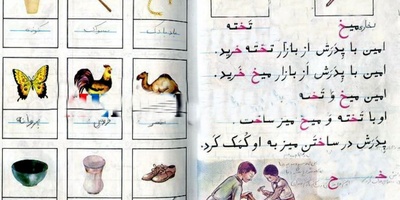 میخ تَخته
امین با پِدَرَش اَز بازار تَخته خَرید.
امین با پِدَرَش اَز بازار میخ خَرید.
امین میخ و تَخته
او با تَخته و میخ میز ساخت.
پِدَرَش در ساختَن میز به او کُمَک کَرد.
خـ خ
مسواک
پروانه
خروس
شتر